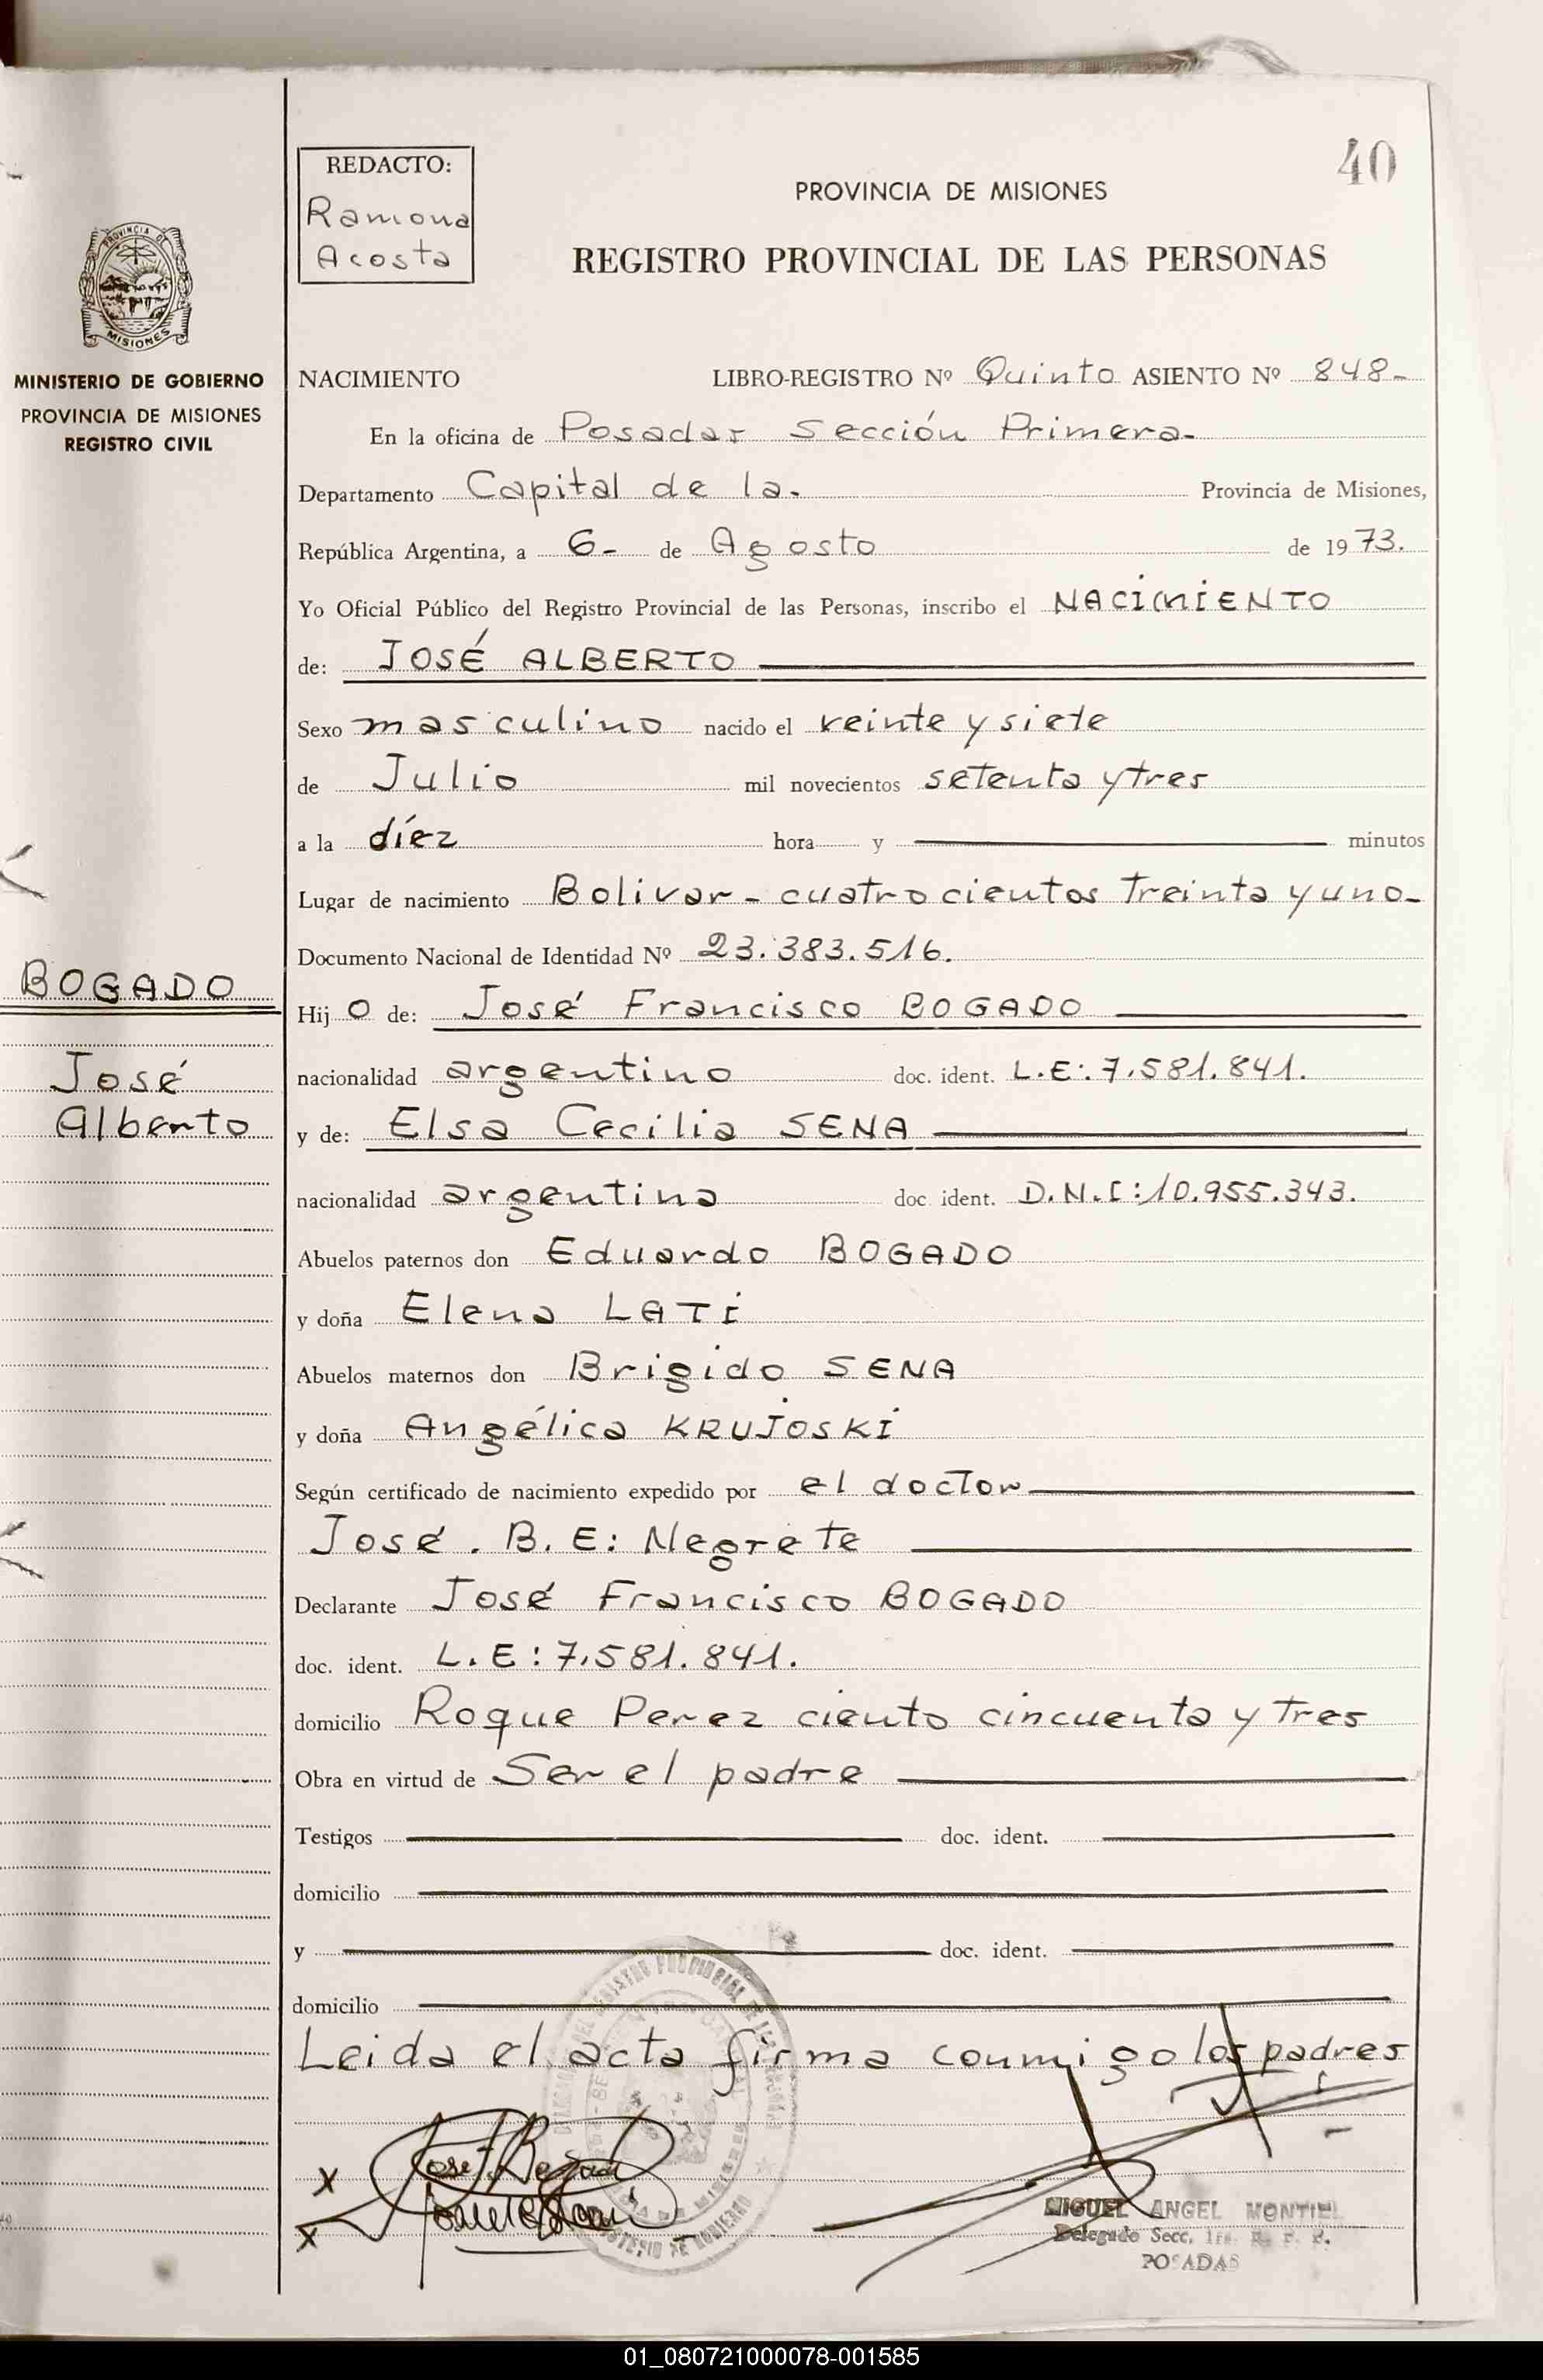 40
REDACTO:
Ramona
Acosta
PROVINCIA DE MISIONES
REGISTRO PROVINCIAL DE LAS PERSONAS
PROVINCIA DE
MISIONES
MINISTERIO DE GOBIERNO
PROVINCIA DE MISIONES
REGISTRO CIVIL
NACIMIENTO LIBRO-REGISTRO Nº Quinto ASIENTO Nº 848-
En la oficina de Posadas Sección Primera-
Departamento Capital de la. Provincia de Misiones,
República Argentina, a 6- de Agosto de 1973.
Yo Oficial Público del Registro Provincial de las Personas, inscribo el NACIMIENTO
de: JOSÉ ALBERTO
Sexo masculino nacido el veinte y siete
de Julio mil novecientos setenta y tres
a la díez hora y minutos
Lugar de nacimiento Bolivar - cuatrocientos treinta y uno-
Documento Nacional de Identidad Nº 23.383.516.
BOGADO
José
Alberto
Hij o de: José Francisco BOGADO
nacionalidad argentino doc. ident. L.E:. 7.581.841.
y de: Elsa Cecilia SENA
nacionalidad argentina doc. ident. D.N.I:10.955.343.
Abuelos paternos don Eduardo BOGADO
y doña Elena LATI
Abuelos maternos don Brigido SENA
y doña Angélica KRUJOSKI
Según certificado de nacimiento expedido por el doctor
José. B. E: Negrete
Declarante José Francisco BOGADO
doc. ident. L.E:7.581.841.
domicilio Roque Perez ciento cincuenta y tres
Obra en virtud de Ser el padre
Testigos doc. ident.
domicilio
y doc. ident.
domicilio
Leida el acta firma conmigo los padres
x
x
MIGUEL ANGEL MONTIEL
Delegado Secc. 1ra. R. P. P.
POSADAS
01_080721000078-001585